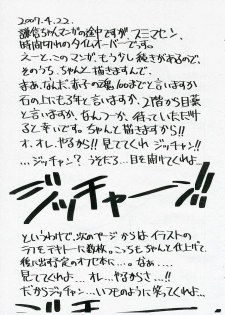 2007.4.22.
謙信ちゃんマンガの途中ですが、スミマセン、
時間切れのタイムオーバーです。
えーと、このマンガ、もう少し続きがあるので、
そのうち、ちゃんと描きますんで、
まぁ、なんだ、赤子の魂、100までと言いますか
石の上にも3年と言いますか、2階から目薬
と言いますか、なんつーか、待っていただけ
ると幸いです。ちゃんと描きますから!!
オ、オレ、やるから!! 見ててくれ ジッチャン!!
...ジッチャン? うそだろ...目を開けてくれよ...
ジッチャーン!!
というわけで、次のページからはイラストの
ラフをテキトーに数枚。こっちもちゃんと仕上げて、
後に出す予定のオフセ本に...。なぁ...
見ててくれよ...オレ...やるからさ...!!
だからジッチャン...いつものように笑ってくれよ...
ジッチャーン!!